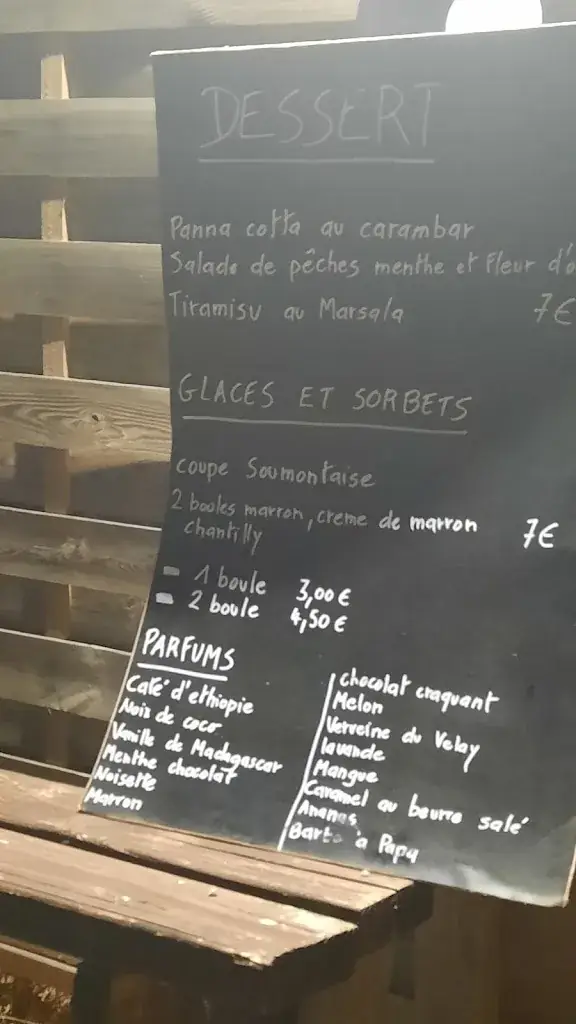 DESSERT
Panna cotta au carambar
Salade de pêches menthe et Fleur d'o
Tiramisu au Marsala 7€
GLACES ET SORBETS
coupe Soumontaise
2 boules marron, creme de marron 7€
chantilly
- 1 boule 3,00€
- 2 boule 4,50€
PARFUMS
Café d'ethiopie
Noix de coco
Vanille de Madagascar
Menthe chocolat
Noisette
Marron
chocolat craquant
Melon
Verveine du Velay
lavande
Mangue
Caramel au beurre salé
Ananas
Barbe à Papa